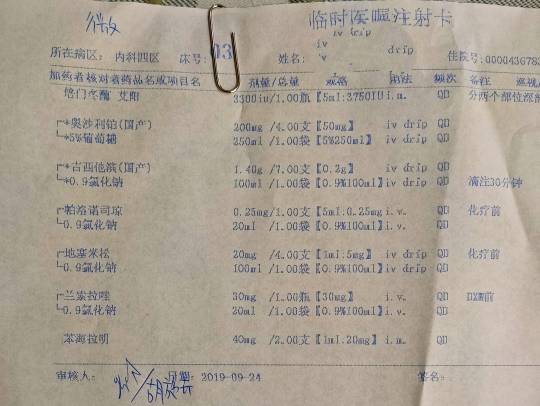 临时医嘱注射卡
所在病区: 内科四区 床号: 03 姓名: 住院号:0000436783
iv drip
iv drip
加药者核对着药品名或项目名 剂量/总量 规格 用法 频次 备注
培门冬酶 艾阳 3300iu/1.00瓶【5ml:3750IU i.m. QD 分两个部位深
┌*奥沙利铂(国产) 200mg /4.00支【50mg】 iv drip QD
└*5%葡萄糖 250ml /1.00袋【5%250ml】 iv drip QD
┌*吉西他滨(国产) 1.40g /7.00支【0.2g】 iv drip QD
└*0.9氯化钠 100ml /1.00袋【0.9%100ml】iv drip QD 滴注30分钟
┌帕洛诺司琼 0.25mg/1.00支【5ml:0.25mg i.v. QD 化疗前
└0.9氯化钠 20ml /1.00袋【0.9%100ml】i.v. QD
┌地塞米松 20mg /4.00支【1ml.5mg】 iv drip QD 化疗前
└0.9氯化钠 100ml /1.00袋【0.9%100ml】iv drip QD
┌兰索拉唑 30mg /1.00瓶【30mg】 i.v. QD DXM前
└0.9氯化钠 20ml /1.00袋【0.9%100ml】i.v. QD
苯海拉明 40mg /2.00支【1ml.20mg】 i.m. QD
审核人: 日期: 2019-09-24 签名: